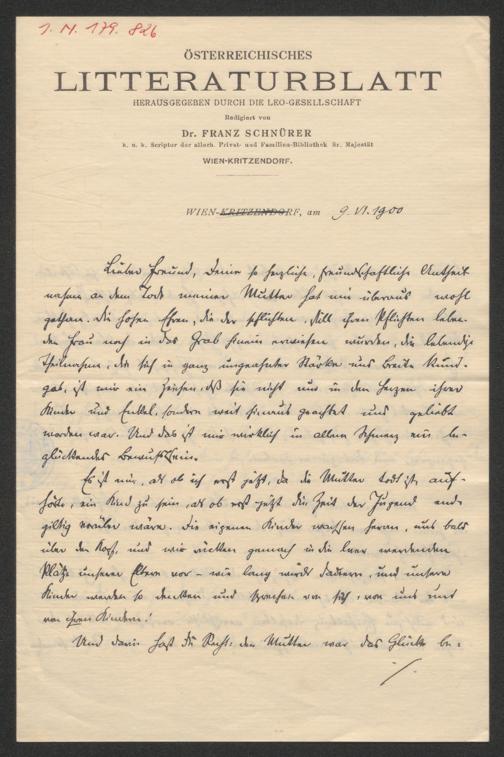 I. N. 179.826
ÖSTERREICHISCHES
LITTERATURBLATT
HERAUSGEGEBEN DURCH DIE LEO-GESELLSCHAFT
Redigiert von
Dr. FRANZ SCHNÜRER
k. u. k. Scriptor der allerh. Privat- und Familien-Bibliothek Sr. Majestät
WIEN-KRITZENDORF.
WIEN-KRITZENDORF, am 9. VI. 1900
Lieber Freund, Deine so herzliche, freundschaftliche Antheil-
nahme an dem Tode meiner Mutter hat mir überaus wohl
gethan. Die hohen Ehren, die der schlichten, still ihren Pflichten leben-
den Frau noch in das Grab hinein erwiesen wurden, die lebendige
Theilnahme, die sich in ganz ungeahnter Stärke und Breite kund-
gab, ist mir ein Zeichen, daß sie nicht nur in den Herzen ihrer
Kinder und Enkel, sondern weit hinaus geachtet und geliebt
worden war. Und das ist mir wirklich in allem Schmerz ein be-
glückendes Bewußtsein.
Es ist mir, als ob ich erst jetzt, da die Mutter todt ist, auf-
hörte, ein Kind zu sein, als ob erst jetzt die Zeit der Jugend end-
giltig vorüber wäre. Die eigenen Kinder wachsen heran, uns bald
über den Kopf, und wir rücken gemach in die leer werdenden
Plätze unserer Eltern vor – wie lang wirds dauern, und unsere
Kinder werden so denken und sprechen von sich, von uns und
von ihren Kindern!
Und darin hast Du Recht: der Mutter war das Glück be-
./.